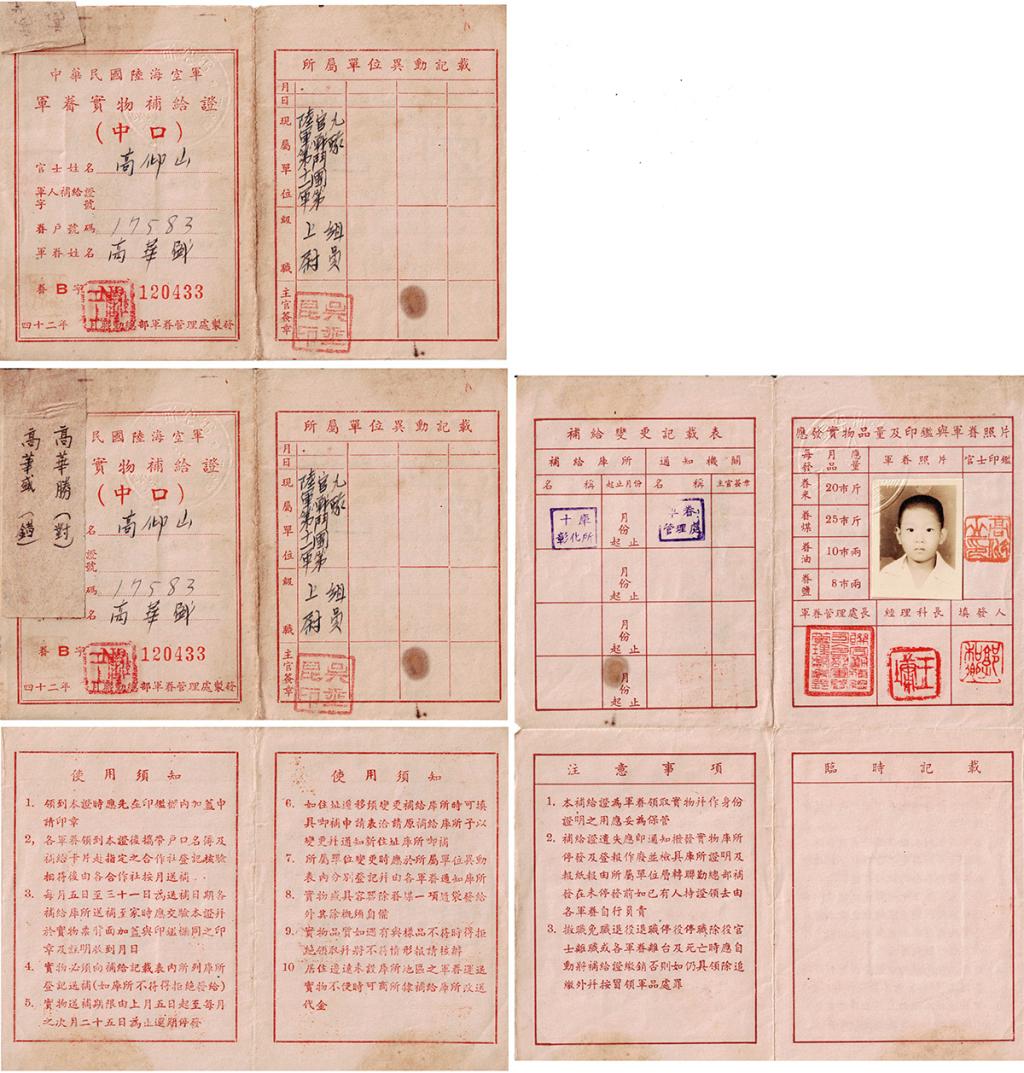 中華民國陸海空軍
軍眷實物補給證
(中口)
官士姓名 高仰山
軍人補給證
字 號
眷戶號碼 17583
軍眷姓名 高華盛
眷B字 120433
四十二年 月聯勤總部軍眷管理處製發
所屬單位異動記載
月
日
現屬單位
陸軍第十二軍
官戰鬥團第
九隊
級職
上尉
組員
主官簽章
高華勝(對)
高華盛(錯)
民國陸海空軍
實物補給證
(中口)
名 高仰山
證
號
碼 17583
名 高華盛
眷B字 120433
四十二年 月聯勤總部軍眷管理處製發
所屬單位異動記載
月
日
現屬單位
陸軍第十二軍
官戰鬥團第
九隊
級職
上尉
組員
主官簽章
補給變更記載表
補給庫所 通知機關
名稱 起止月份 名稱 主官簽章
十庫
彰化所
月份起止
眷
管理處
月份起止
月份起止
月份起止
應發實物品量及印鑑與軍眷照片
每月應發品量 軍眷照片 官士印鑑
眷米 20市斤
眷煤 25市斤
眷油 10市兩
眷鹽 8市兩
軍眷管理處長 經理科長 填發人
使用須知
1. 領到本證時應先在印鑑欄內加蓋申
請印章
2. 各軍眷領到本證後攜帶戶口名簿及
補給卡片赴指定之合作社登記核驗
相符後由各合作社按月送補
3. 每月五日至三十一日為送補日期各
補給庫所送補至家時應交驗本證并
於實物票背面加蓋與印鑑欄同之印
章及註明收到月日
4. 實物必須向補給記載表內所列庫所
登記送補(如庫所不符得拒絕發給)
5. 實物送補期限由上月五日起至每月
之次月二十五日為止逾期停發
使用須知
6. 如住址遷移須變更補給庫所時可填
具卸補申請表洽請原補給庫所予以
變更并通知新住址庫所卸補
7. 所屬單位變更時應於所屬單位異動
表內分別登記并由各軍眷通知庫所
8. 實物盛具容器除眷煤一項造袋發給
外其除概須自備
9. 實物品質如遇有與樣品不符時得拒
絕領取并將不符情形報請核辦
10 居住邊遠未設庫所地區之軍眷運送
實物不便時可商所隸補給庫所改送
代金
注意事項
1. 本補給證為軍眷領取實物并作身份
證明之用應妥為保管
2. 補給證遺失應即通知撥發實物庫所
停發及登報作廢並檢具庫所證明及
報紙報由所屬單位層轉聯勤總部補
發在未停發前如已有人持證領去由
各軍眷自行負責
3. 撤職免職退役退職停役停職除役官
士離職或各軍眷離台及死亡時應自
動將補給證繳銷否則如仍具領除追
繳外并按冒領軍品處罪
臨時記載